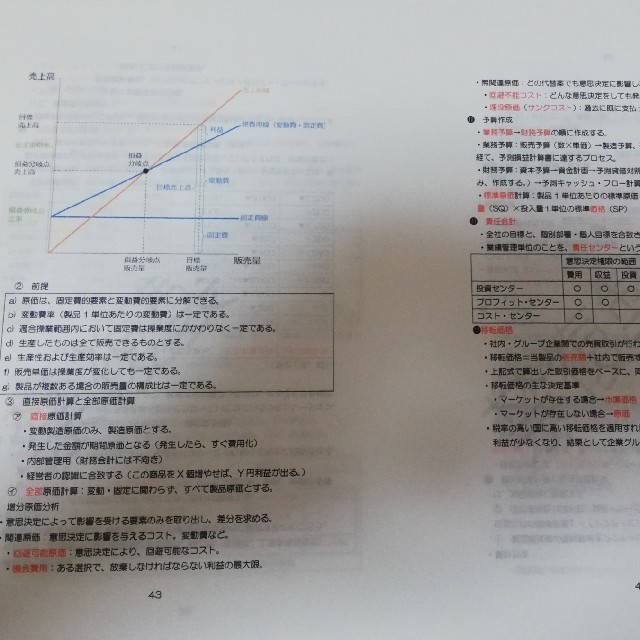 売上高
目標
売上高
損益分岐点
売上高
損益
分岐点
利益
総費用線（変動費＋固定費）
変動費
目標売上点
固定費線
固定費
損益分岐点
販売量
目標
販売量
販売量
② 前提
a) 原価は、固定費的要素と変動費的要素に分解できる。
b) 変動費率（製品１単位あたりの変動費）は一定である。
c) 適合操業範囲内において固定費は操業度にかかわりなく一定である。
d) 生産したものは全て販売できるものとする。
e) 生産性および生産効率は一定である。
f) 販売単価は操業度が変化しても一定である。
g) 製品が複数ある場合の販売量の構成比は一定である。
③ 直接原価計算と全部原価計算
㋐ 直接原価計算
・変動製造原価のみ、製造原価とする。
・発生した金額が期間原価となる（発生したら、すぐ費用化）
・内部管理用（財務会計には不向き）
・経営者の認識に合致する（この商品をX個増やせば、Y円利益が出る。）
㋑ 全部原価計算：変動・固定に関わらず、すべて製品原価とする。
増分原価分析
・意思決定によって影響を受ける要素のみを取り出し、差分を求める。
・関連原価：意思決定に影響を与えるコスト。変動費など。
・回避可能原価：意思決定により、回避可能なコスト。
・機会費用：ある選択で、放棄しなければならない利益の最大限。
43
・無関連原価：どの代替案でも意思決定に影響し
・回避不能コスト：どんな意思決定をしても発
・埋没原価（サンクコスト）：過去に既に支払
予算作成
・業務予算→財務予算の順に作成する。
・業務予算：販売予算（数×単価）→製造予算、
経て、予測損益計算書に達するプロセス。
・財務予算：資本予算→資金計画→予測貸借対照
み、作成する。）→予測キャッシュ・フロー計算
・標準原価計算：製品１単位あたりの標準原価
量（SQ）×投入量１単位の標準価格（SP）
責任会計
・全社の目標と、個別部署・個人目標を合致さ
・業績管理単位のことを、責任センターという
意思決定権限の範囲
費用 収益 投資
投資センター ○ ○ ○
プロフィット・センター ○ ○
コスト・センター ○
移転価格
・社内・グループ企業間での売買取引が行わ
・移転価格＝当製品の販売額＋社内で販売す
・上記式で算出した取引価格をベースに、両
・移転価格の主な決定基準
・マーケットが存在する場合→市場価格
・マーケットが存在しない場合→原価
・税率の高い国に高い移転価格を適用すれば
利益が少なくなり、結果として企業グル